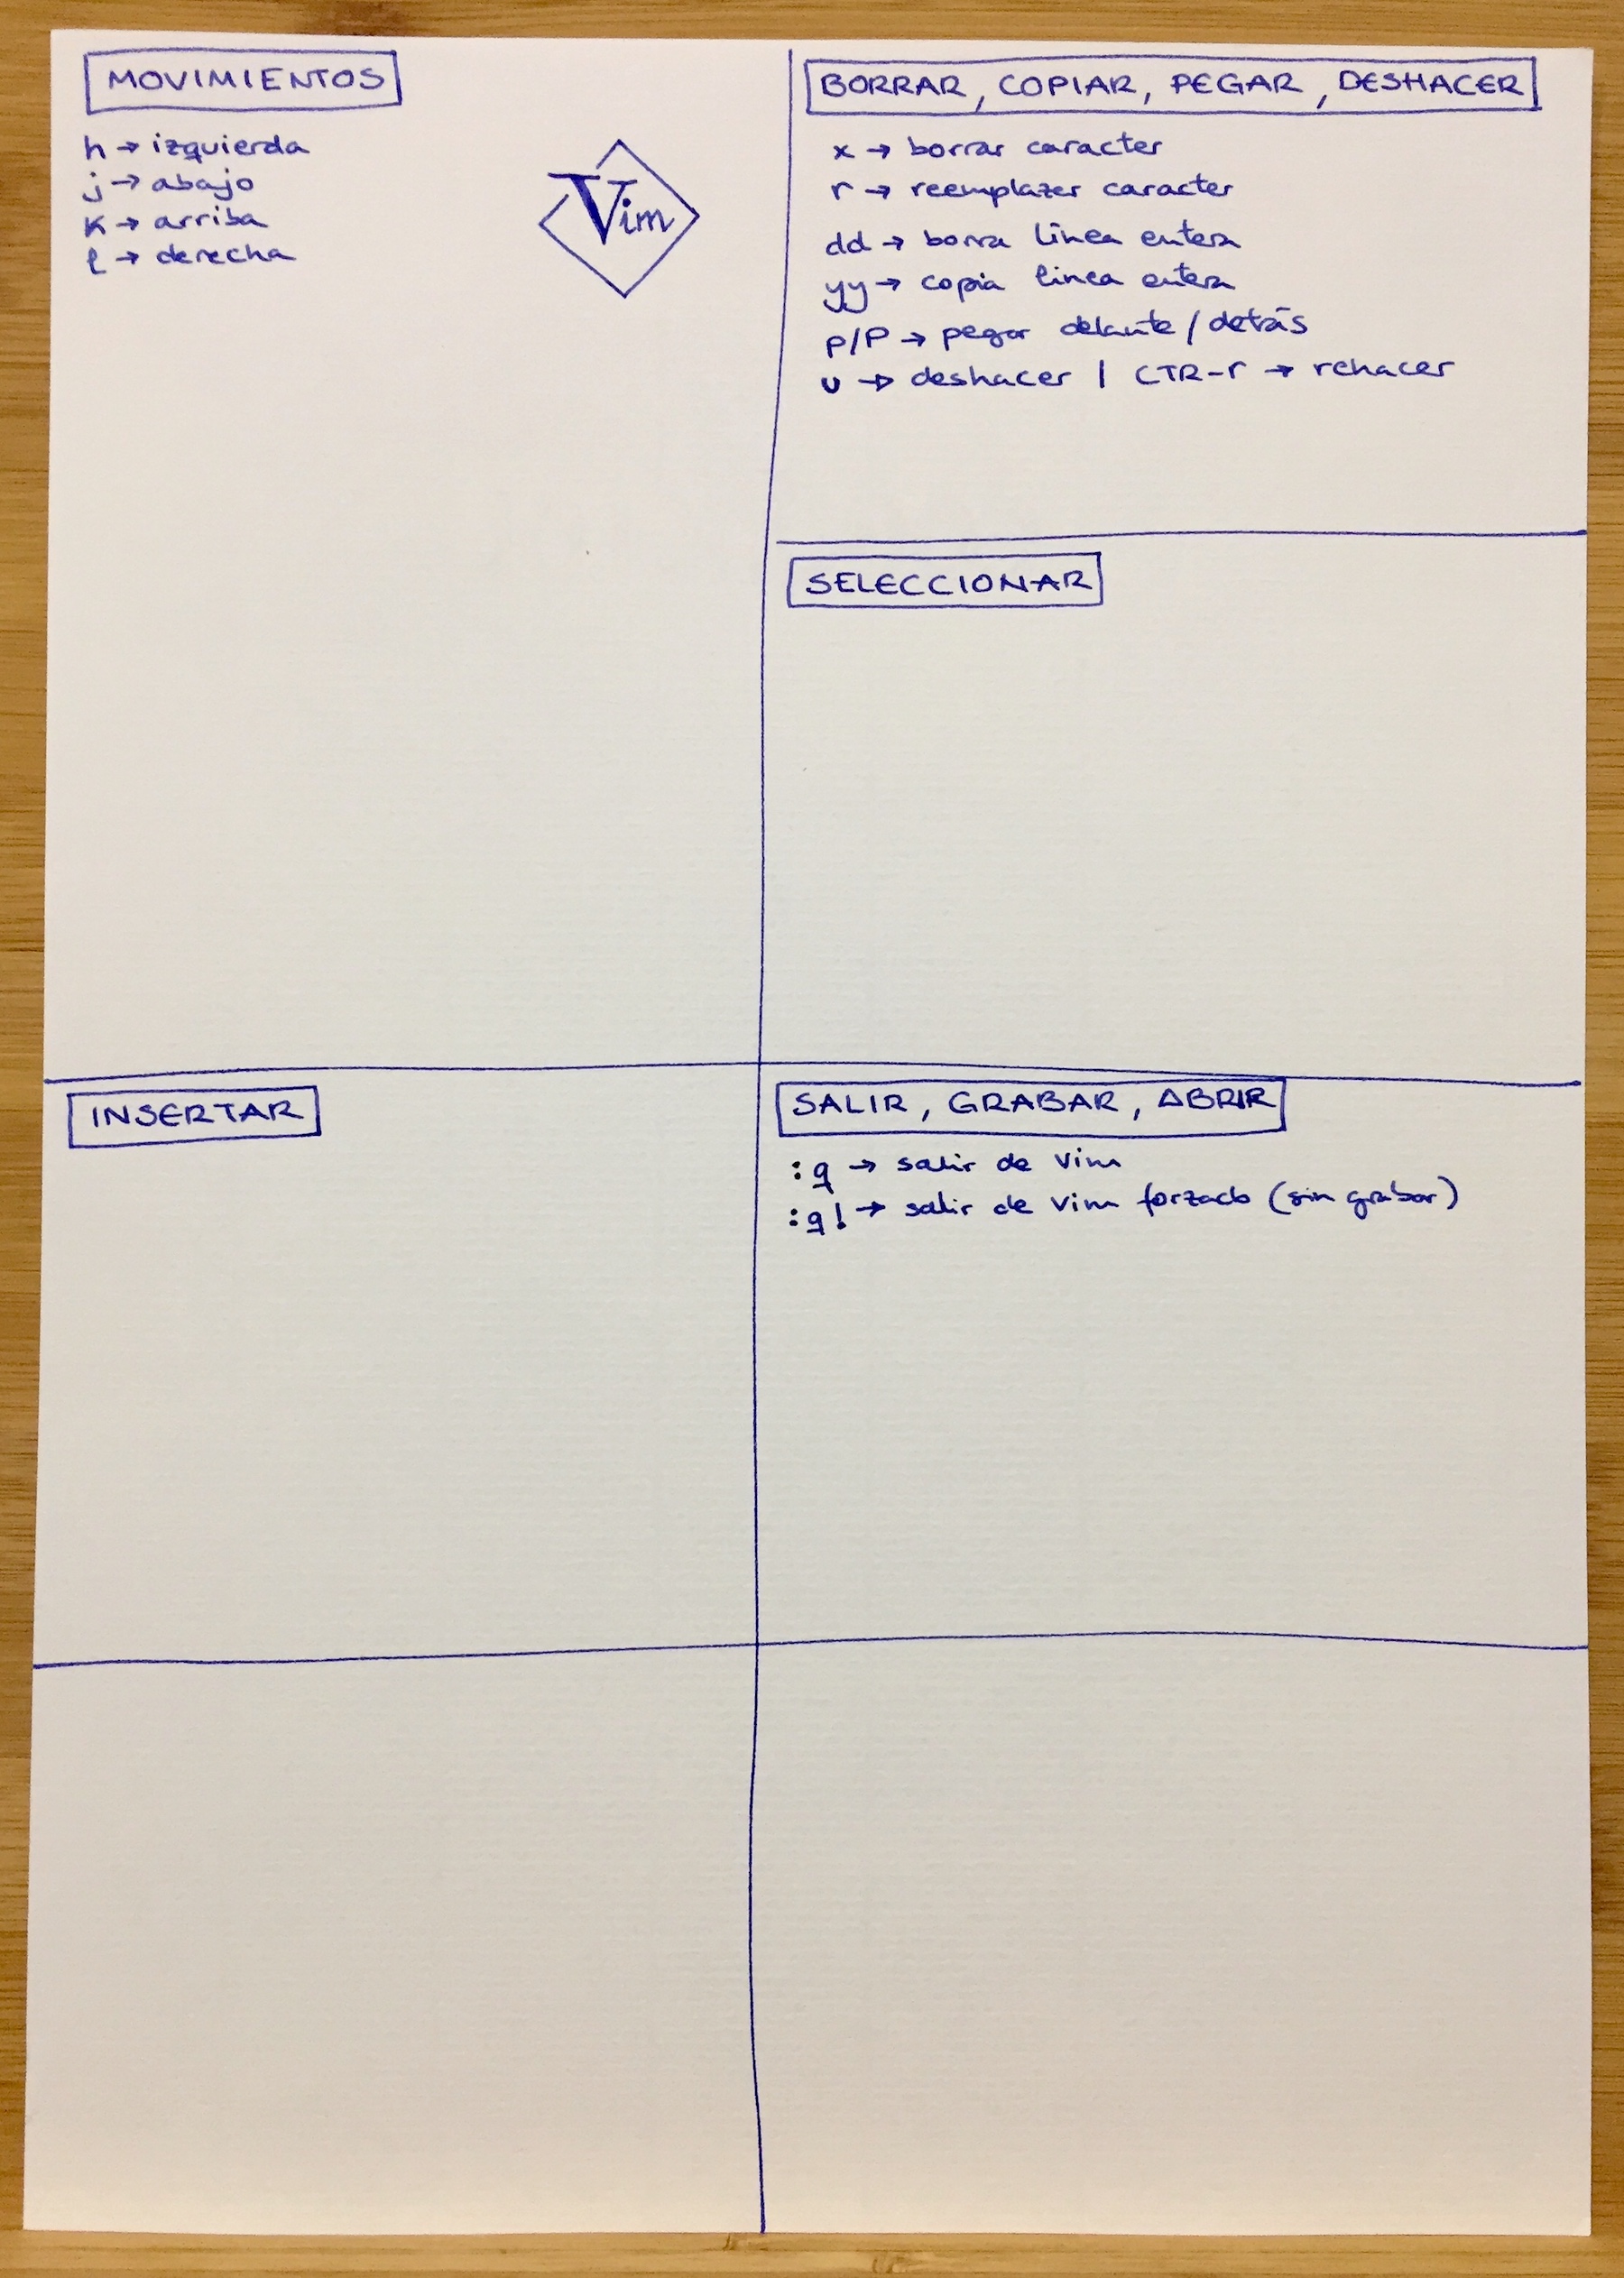 MOVIMIENTOS
h → izquierda
j → abajo
k → arriba
l → derecha
Vim
BORRAR, COPIAR, PEGAR, DESHACER
x → borrar caracter
r → reemplazar caracter
dd → borra línea entera
yy → copia línea entera
p/P → pegar delante/detrás
u → deshacer | CTR-r → rehacer
SELECCIONAR
INSERTAR
SALIR, GRABAR, ABRIR
:q → salir de vim
:q! → salir de vim forzado (sin grabar)